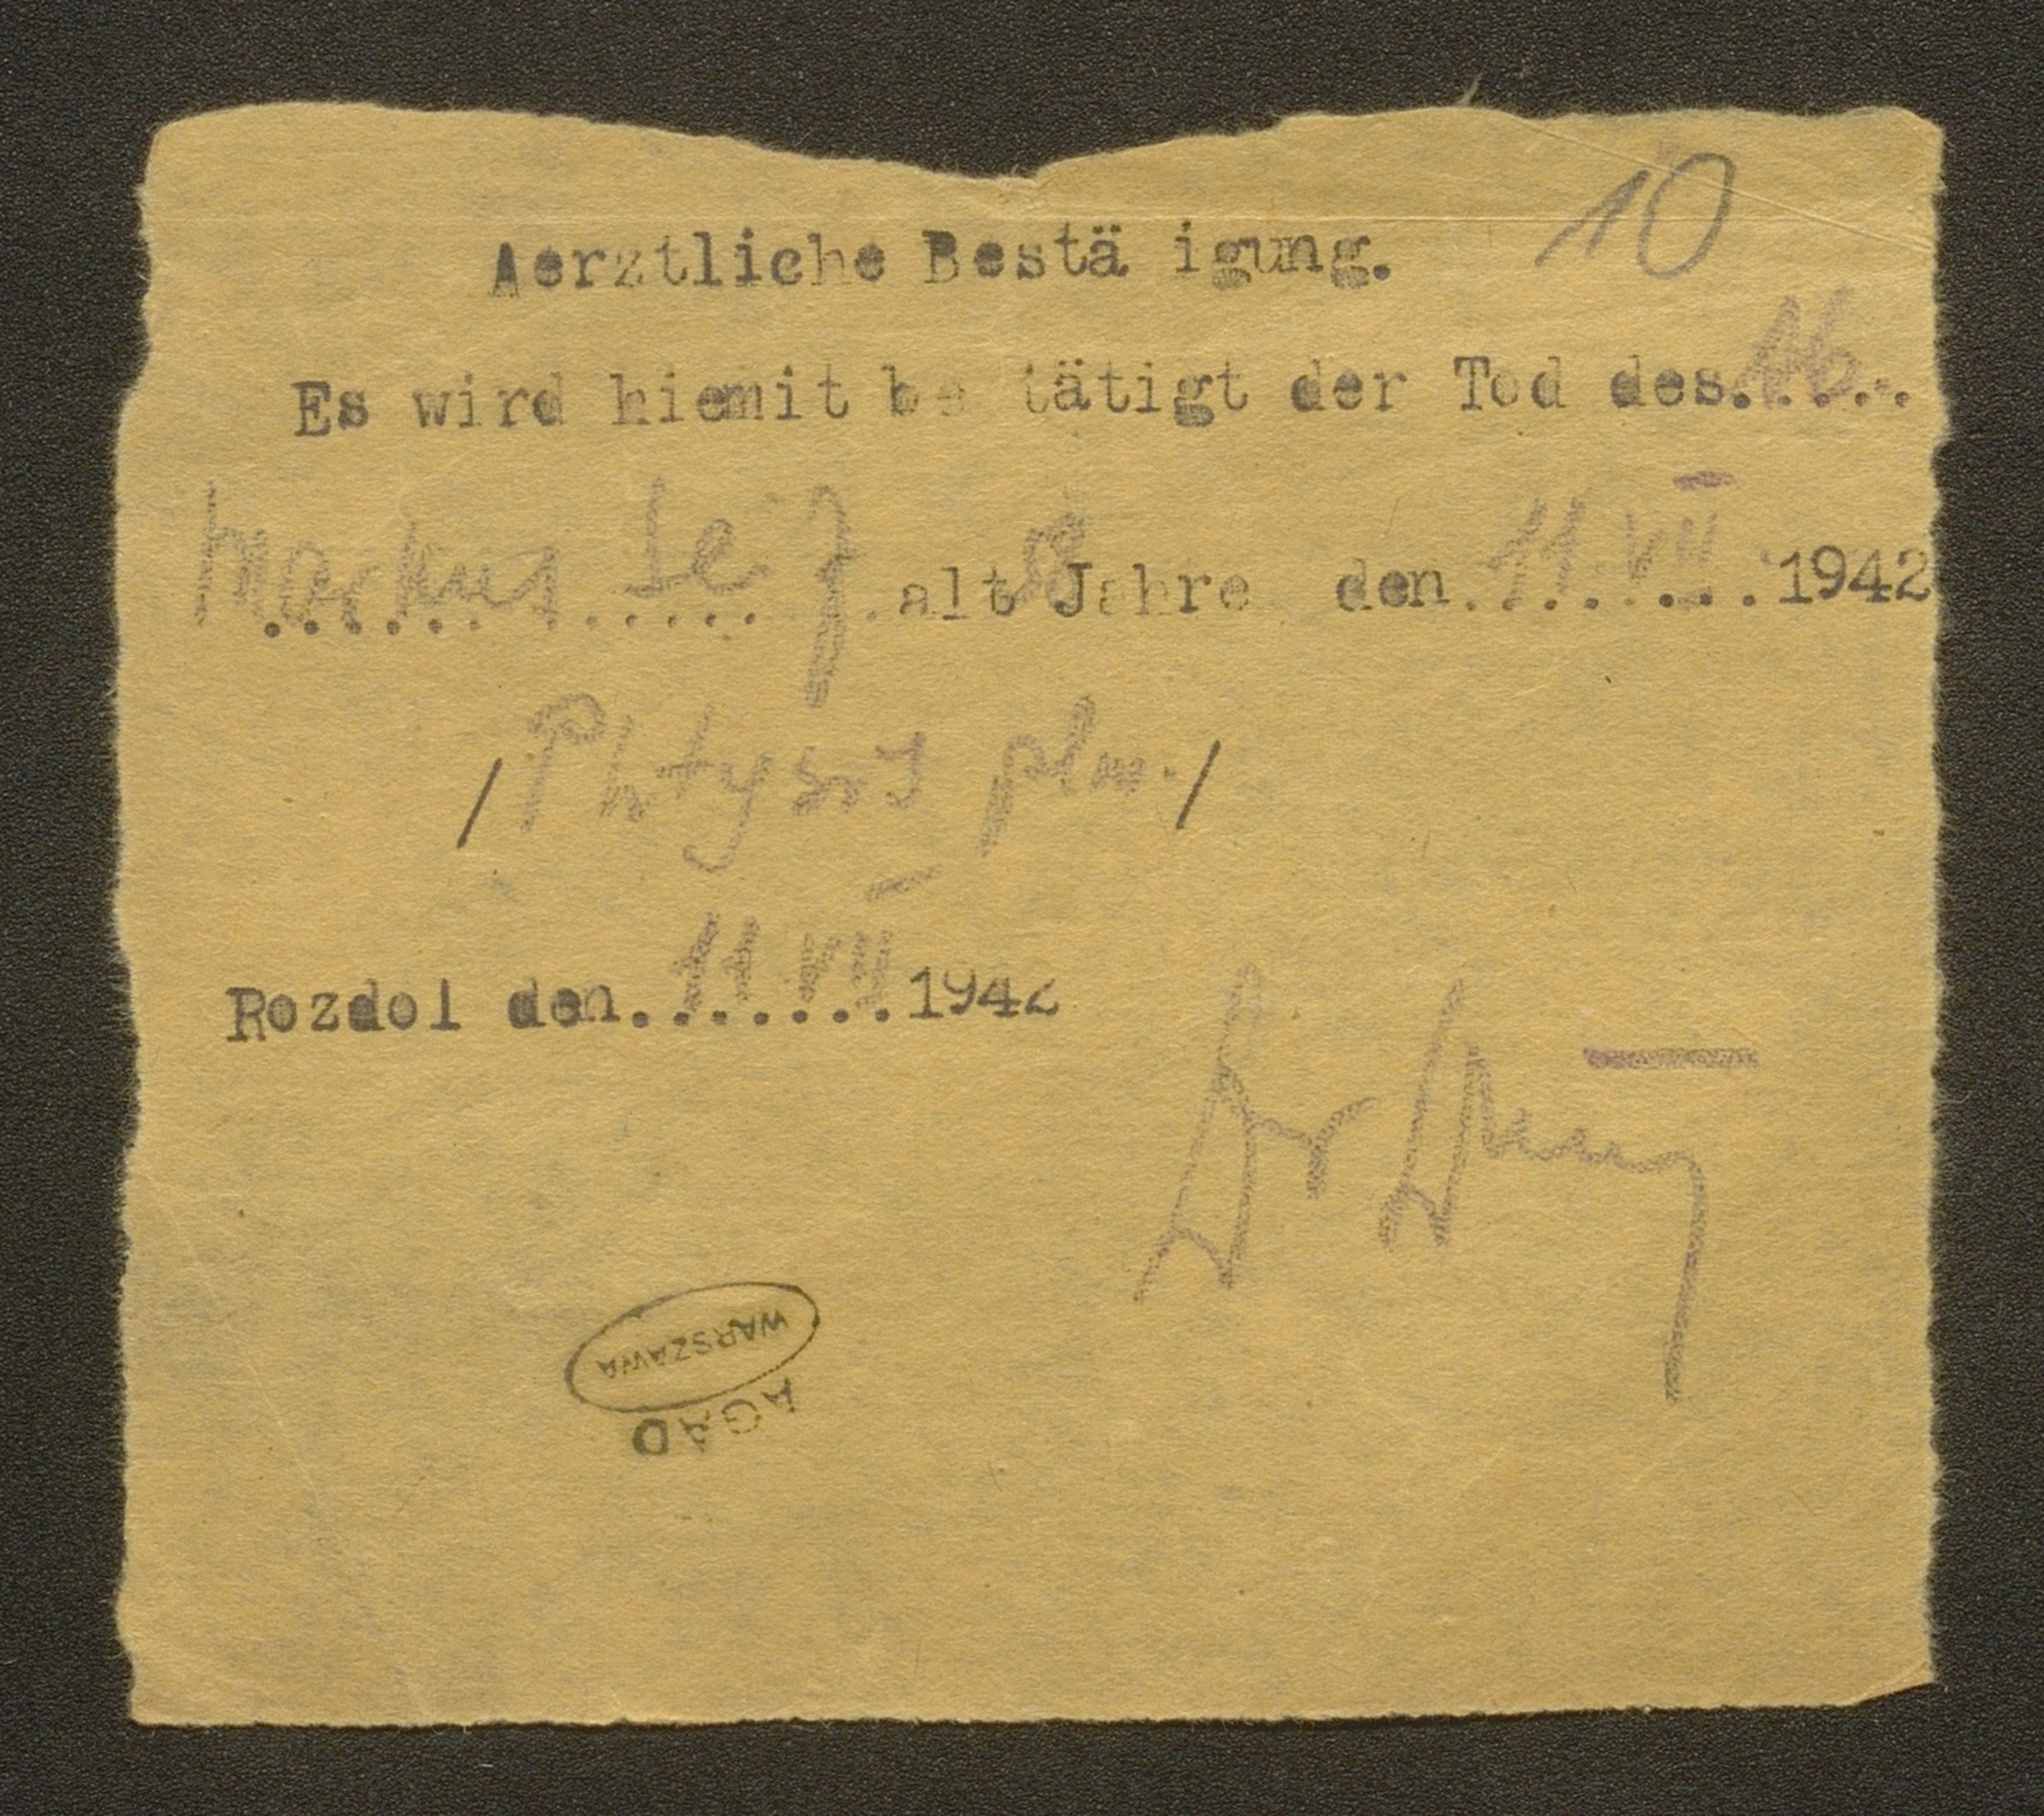 10
Aerztliche Bestä igung.
Es wird hiemit be tätigt der Tod des.....
Markus Seif alt Jahre den 11 VII 1942
/Phtysis plm./
Rozdol den 11 VII 1942
Dr
WARSZAWA
AGAD